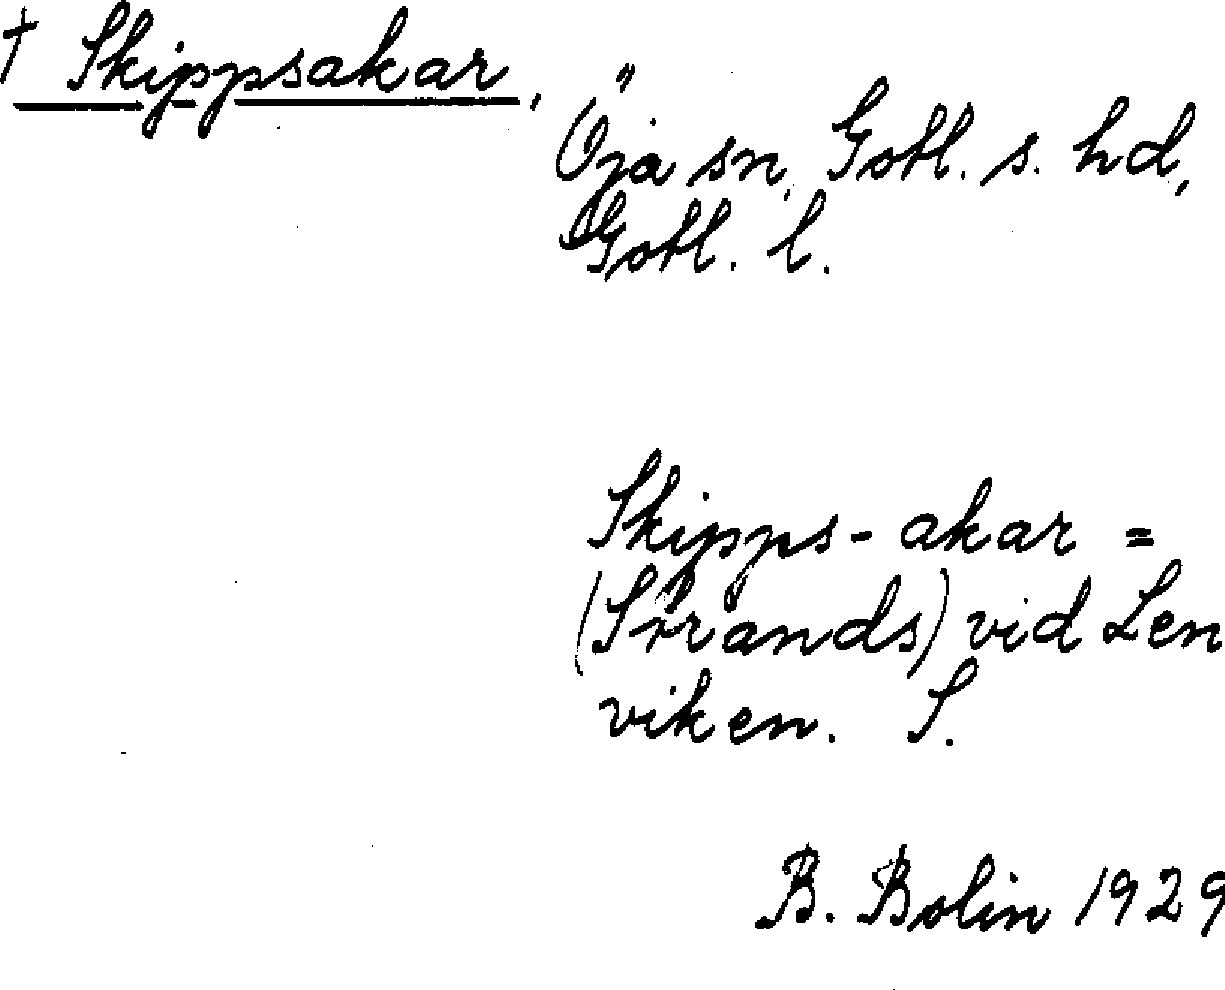 † Skippsakar,
Öja sn, Gotl. s. hd,
Gotl. l.
Skipps-akar =
(Strands) vid Len
viken. S.
B. Bolin 1929